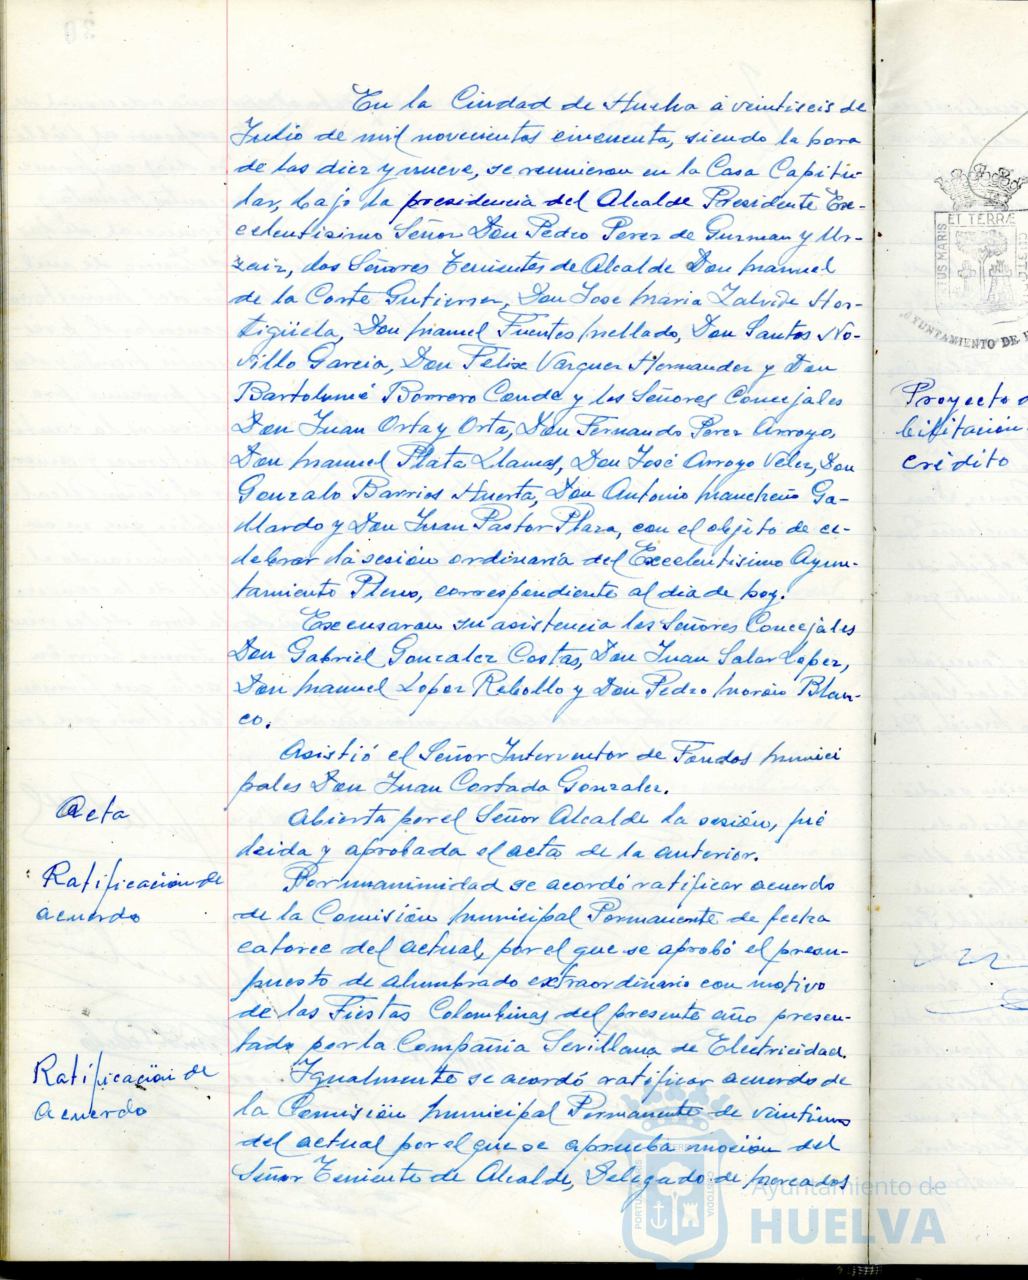 En la Ciudad de Huelva a veintiseis de
Julio de mil novecientos cincuenta, siendo la hora
de las diez y nueve, se reunieron en la Casa Capitu-
lar, bajo la presidencia del Alcalde Presidente Ex-
celentisimo Señor Don Pedro Perez de Guzman y Ur-
zaiz, los Señores Tenientes de Alcalde Don Manuel
de la Corte Gutierrez, Don Jose Maria Zalvide Hor-
tigüela, Don Manuel Fuentes Mellado, Don Santos No-
villo Garcia, Don Felix Vazquez Hernandez y Don
Bartolomé Borrero Conde y los Señores Concejales
Don Juan Orta y Orta, Don Fernando Perez Arroyo,
Don Manuel Plata Llamas, Don José Arroyo Velez, Don
Gonzalo Barrios Huerta, Don Antonio Mancheño Ga-
llardo y Don Juan Pastor Plaza, con el objeto de ce-
lebrar la sesión ordinaria del Excelentisimo Ayun-
tamiento Pleno, correspondiente al dia de hoy.
Excusaron su asistencia los Señores Concejales
Don Gabriel Gonzalez Costas, Don Juan Salas Lopez,
Don Manuel Lopez Rebollo y Don Pedro Morón Blan-
co.
Asistió el Señor Interventor de Fondos Munici
pales Don Juan Cortada Gonzalez.
Acta
Abierta por el Señor Alcalde la sesión, fué
leida y aprobada el acta de la anterior.
Ratificación de
acuerdo
Por unanimidad se acordó ratificar acuerdo
de la Comisión Municipal Permanente de fecha
catorce del actual, por el que se aprobó el presu-
puesto de alumbrado extraordinario con motivo
de las Fiestas Colombinas del presente año presen-
tado por la Compañia Sevillana de Electricidad.
Ratificación de
acuerdo
Igualmente se acordó ratificar acuerdo de
la Comisión Municipal Permanente de veintiuno
del actual por el que se aprueba moción del
Señor Teniente de Alcalde, Delegado de Mercados
ET TERRÆ
Proyecto
crédito
Ayuntamiento de
HUELVA